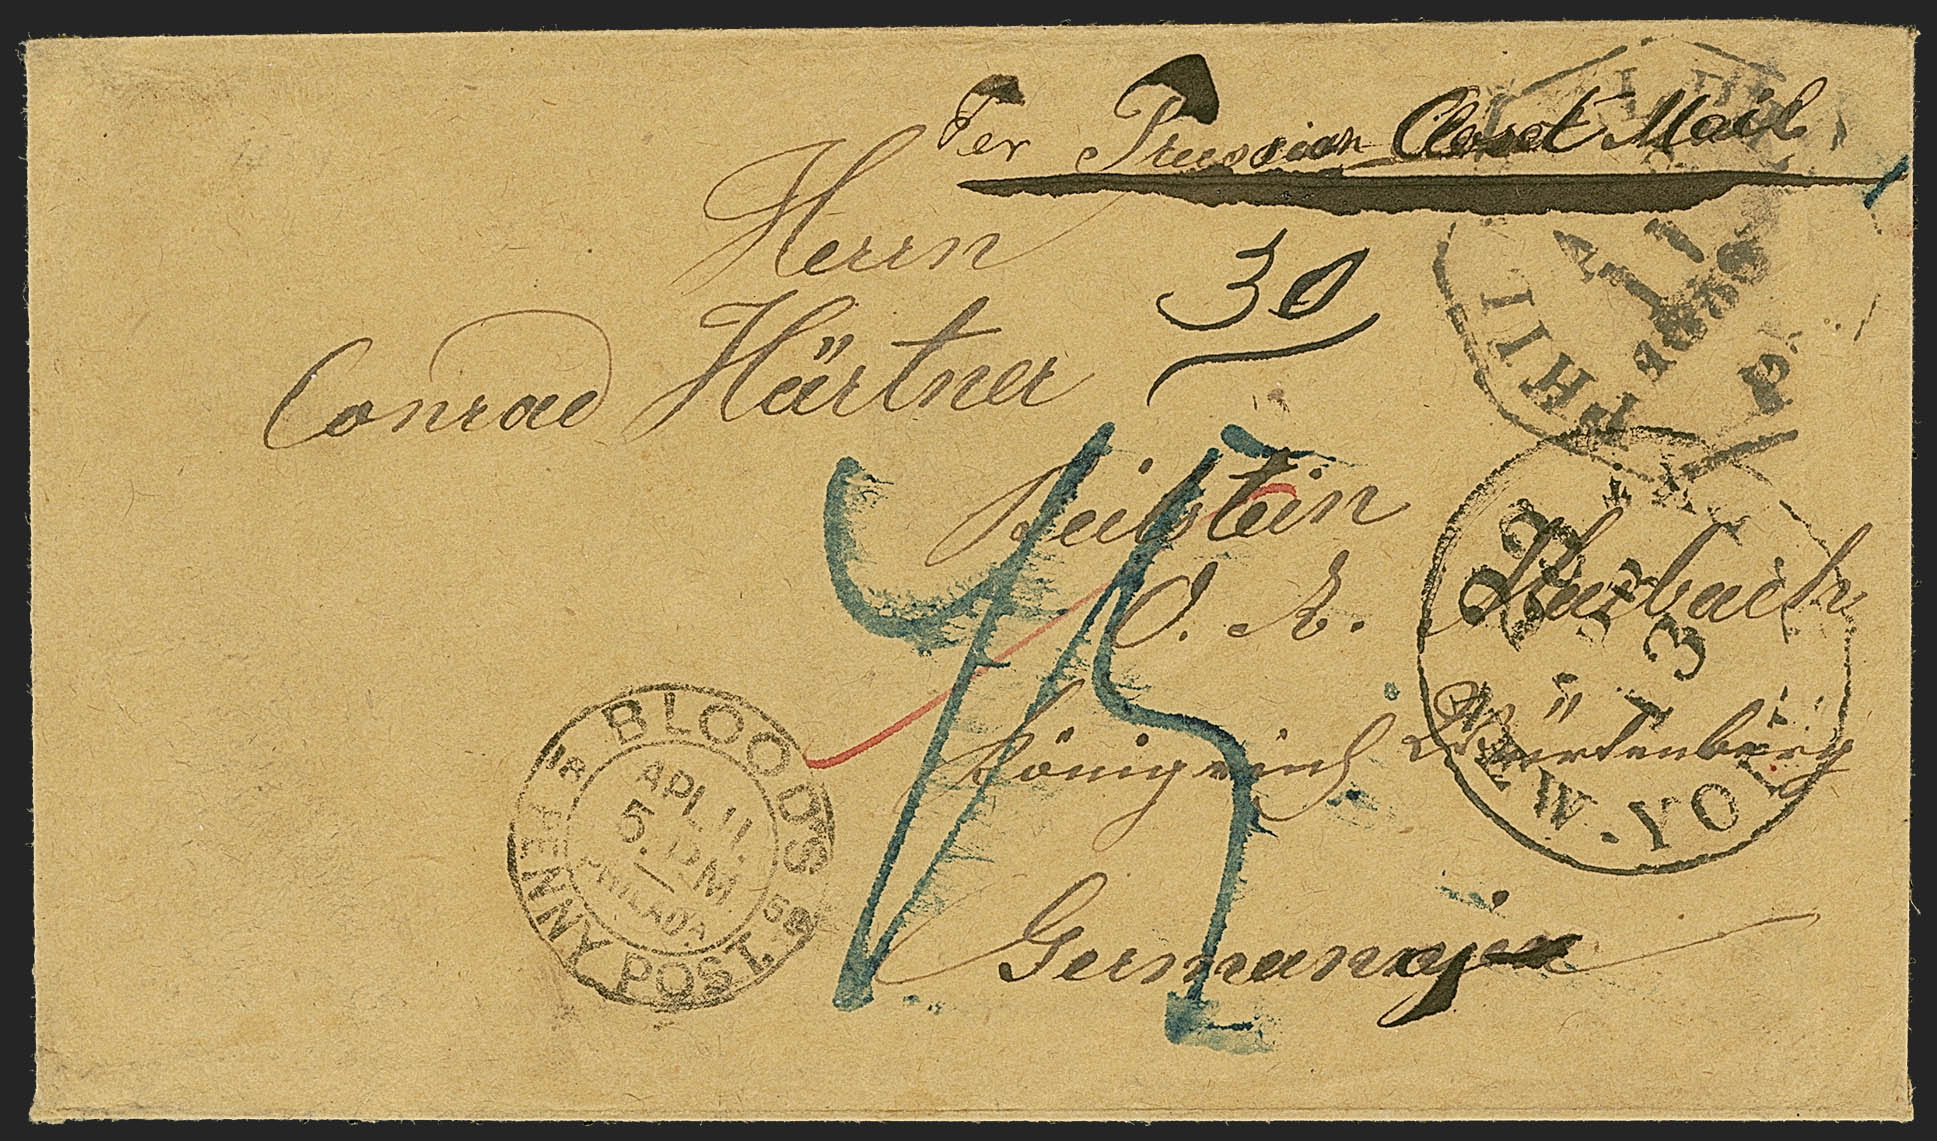 Per Prussian Closet Mail
Herrn
30
Conrad Härtner
Beilstein
O. A. Marbach
Königreich Würtenberg
Germany
45
BLOOD'S PENNY POST.
APL 11.
5. P.M
PHILADA
NEW-YORK
23
13